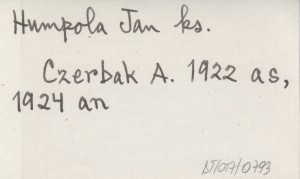 Humpola Jan ks.
Czerbak A. 1922 as,
1924 an
DT/017/0793